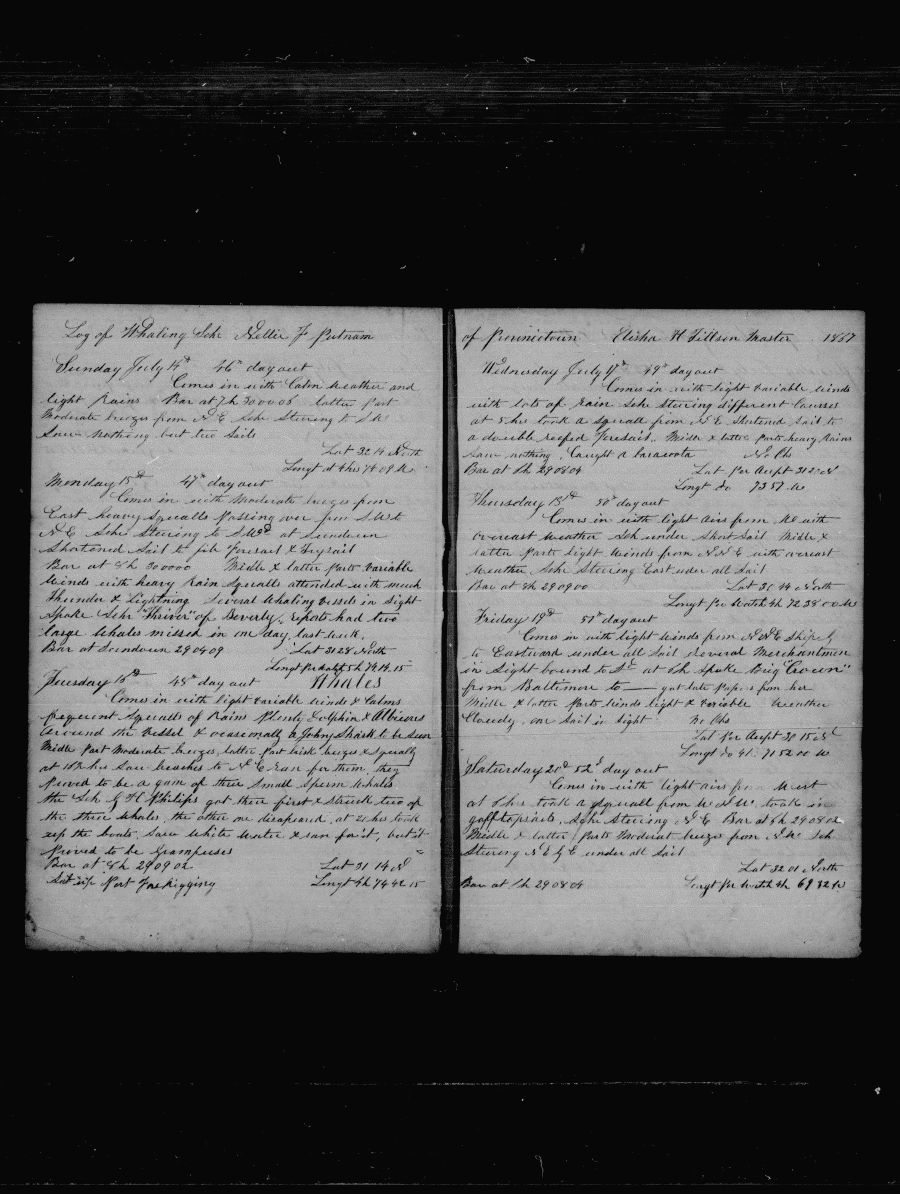 Log of Whaling Schr Nellie F Putnam
Sunday July 14th 46th day out
Comes in with Calm weather and
light Rains Bar at 7h 30 00 06 latter Part
Moderate breezes from N E Schr Steering to S W
Saw nothing but two Sails
Lat 32 14 North
Longt at 4hrs 74 09 W
Monday 15th 47th day out
Comes in with Moderate breezes from
East heavy Squalls Passing over from S W to
N E Schr Steering to S Wd at Sundown
Shortened Sail to jib foresail & trysail
Bar at 8h 30 00 00 Midle & latter Parts variable
winds with heavy Rain Squalls attended with much
Thunder & Lightning Several Whaling vessels in Sight
Spoke Schr "Thriver" of Beverly, reports had two
large whales missed in one day, last week,
Bar at Sundown 29 04 09 Lat 31 28 North
Longt Per 5h 74 14 15
Tuesday 16th 48th day out Whales
Comes in with light variable winds & Calms
frequent Squalls of Rains Plenty Dolphin & Albicores
around the vessel & ocasionally a Johny Shark to be seen
Midle Part Moderate breezes, latter Part brisk breezes & Squally
at hrs Saw breaches to N E ran for them, they
Proved to be a gam of three Small Sperm Whales
the Sch G H Philips got there first & Struck two of
the three whales, the other one disapeared, at 2 hrs took
up the boats, Saw White Water & ran for it, but it
Proved to be Grampuses
Bar at 8h 29 09 02 Lat 31 14 N
Set up Port Fore Rigging Longt 4h 74 42 15
of Provincetown Elisha H Tillson Master 1867
Wednesday July 17th 49th day out
Comes in with light variable winds
with lots of rain Schr Steering different Courses
at 5 hrs took a Squall from N E Shortened Sail to
a double reefed foresail. Midle & latter Parts heavy Rains
Saw nothing, Caught a baracoota No Obs
Bar at 8h 29 08 04 Lat Per Acpt 31 2 N
Longt do 73 57 W
Thursday 18th 50th day out
Comes in with light airs from NE with
overcast weather Sch under Short Sail Midle &
latter Parts light winds from N N E with overcast
weather, Schr Steering East under all Sail
Bar at 8h 29 09 00 Lat 31 44 North
Longt Per Watch 4h 72 38 00 W
Friday 19th 51st day out
Comes in with light winds from N N E Ship
to Eastward under all Sail Several Merchantmen
in Sight bound to Sd at 6h Spoke Brig "Crown"
from Baltimore to —— got late Papers from her
Midle & latter Parts winds light & variable Weather
Cloudy, one Sail in Sight No Obs
Lat Per Acpt 15 N
Longt do 71 52 00 W
Saturday 20th 52d day out
Comes in with light airs from West
at 6 hrs took a Squall from W N W. took in
gafftopsails, Schr Steering N E Bar at 8h 29 08 02
Midle & latter Parts Moderat breezes from N W Sch
Steering N E by E under all Sail
Lat 32 01 North
Bar at 8h 29 08 04 Longt Per Watch 4h 69 32 W